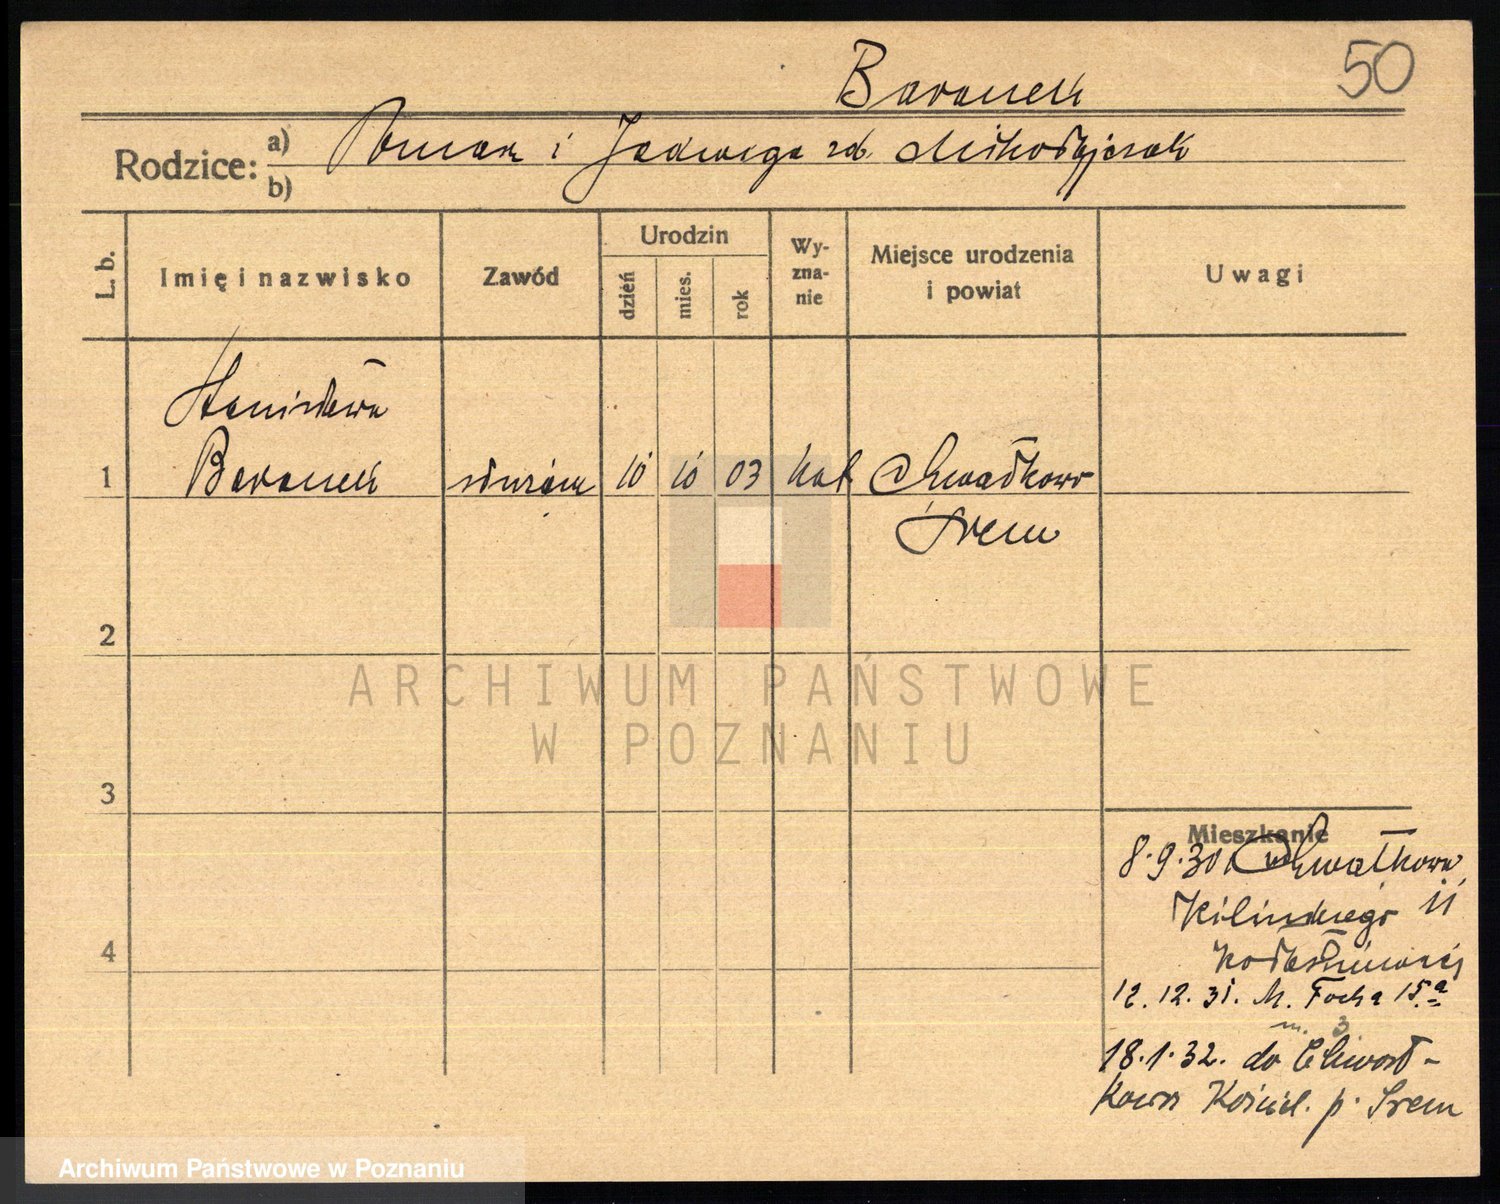 50
Baranek
Rodzice:
a) Roman i Jadwiga zd. Mikołajczak
b)
L. b.
Imię i nazwisko
Zawód
Urodzin
dzień
mies.
rok
Wy-
zna-
nie
Miejsce urodzenia
i powiat
Uwagi
Stanisława
1 Baranek służąca 10 10 03 kat Chwałkowo
Śrem
2
3
4
Mieszkanie
8.9.30 Chwałkowa
Kilińskiego 11
12.12.31. M. Focha 15a
m. 3
18.1.32. do Chwał-
kowa Kościel. p. Śrem
ARCHIWUM PAŃSTWOWE
W POZNANIU
Archiwum Państwowe w Poznaniu